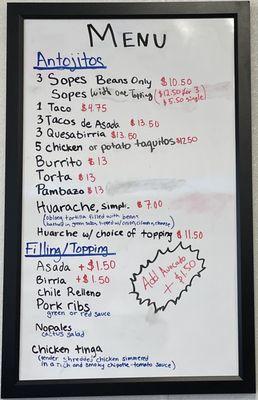 MENU
Antojitos
3 Sopes Beans Only $10.50
Sopes (with one Topping) ($12.50 for 3
$5.50 single)
1 Taco $4.75
3 Tacos de Asada $13.50
3 Quesabirria $13.50
5 chicken or potato taquitos $12.50
Burrito $13
Torta $13
Pambazo $13
Huarache, simpl. $7.00
(oblong tortilla filled with beans
(bathed in green salsa, topped w/onion, cilantro, cheese)
Huarche w/ choice of topping $11.50
Filling/Topping
Asada +$1.50
Birria +$1.50
Chile Relleno
Add Avocato
+ $1.50
Pork ribs
green or red sauce
Nopales
cactus salad
Chicken tinga
(tender shredded chicken simmered
in a rich and smoky chipotle-tomato sauce)